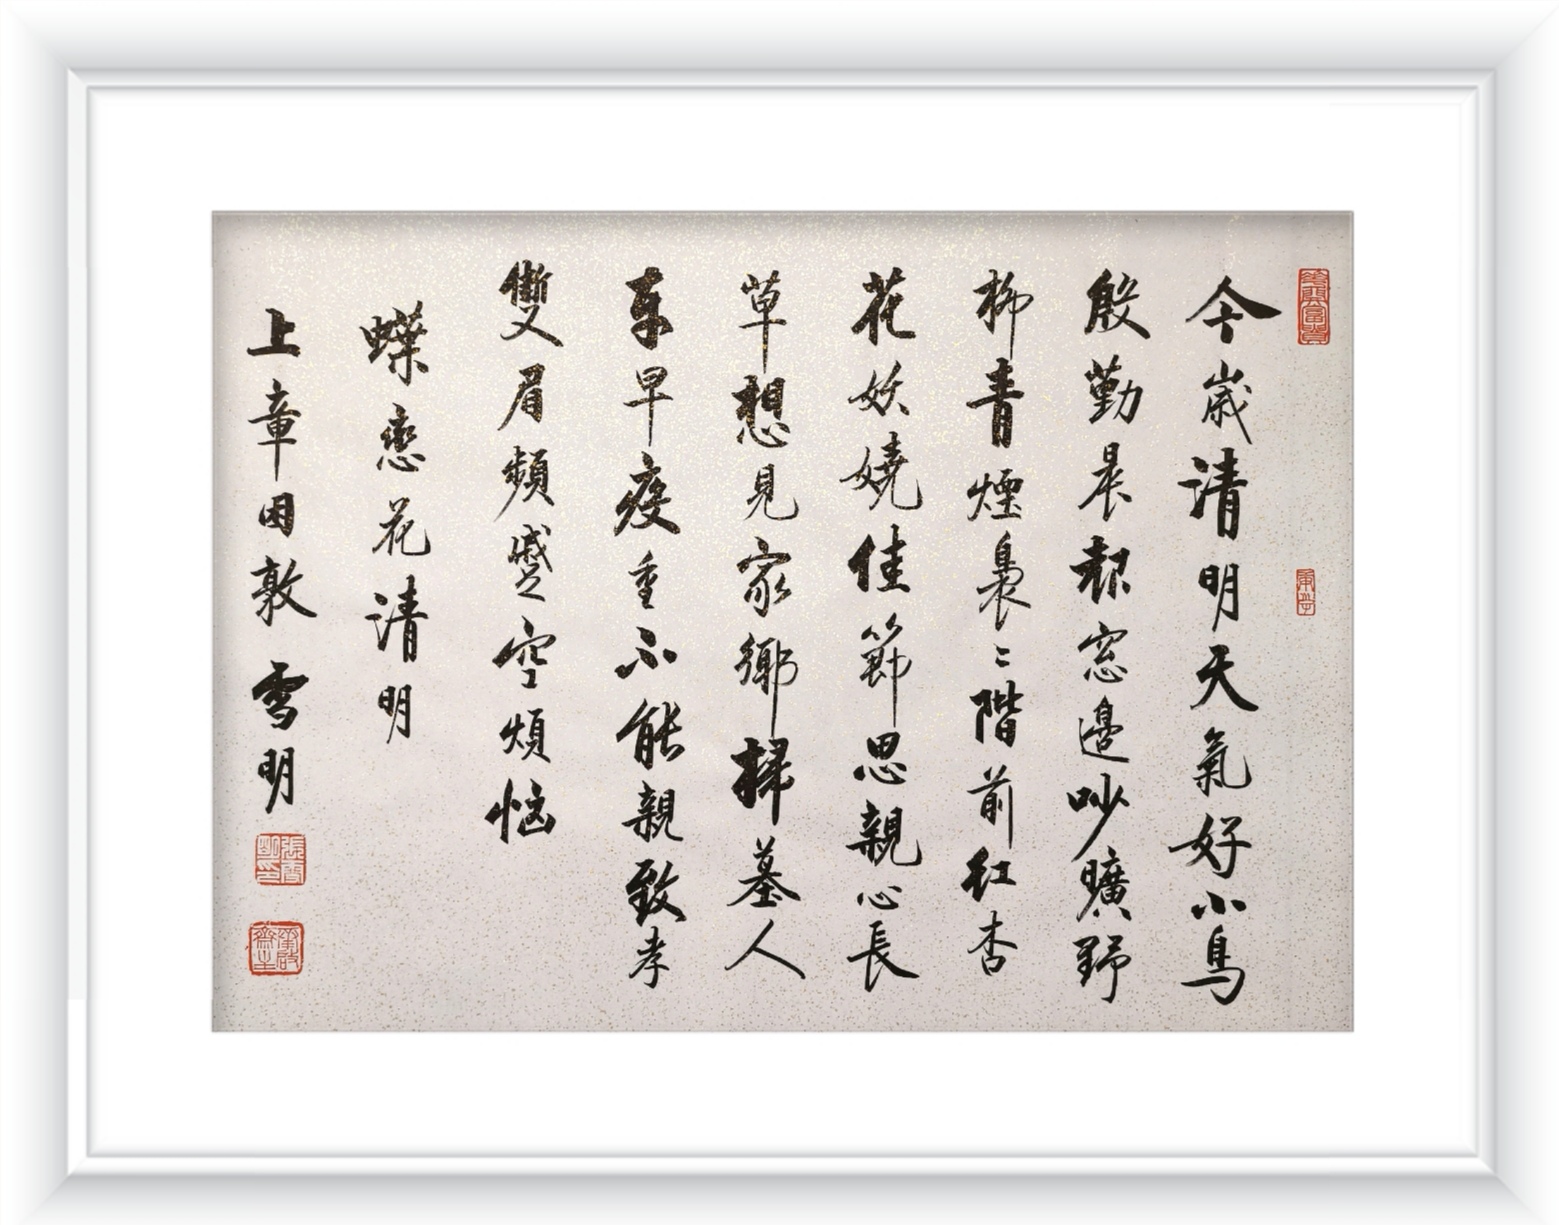 今歲清明天氣好小鳥
殷勤晨報窓邊吵曠野
柳青煙裊〻階前紅杏
花妖嬈佳節思親心長
草想見家鄉掃墓人
車早疫重不能親致孝
雙眉頻蹙空煩惱
蝶戀花清明
上章困敦 雪明
張雪明印